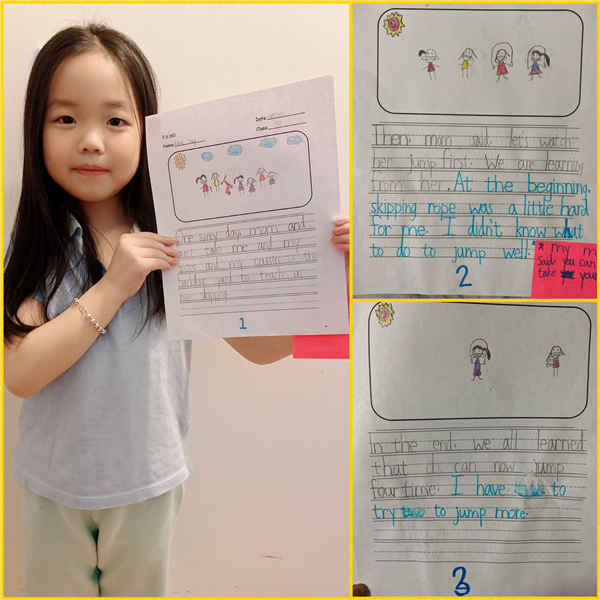 P.S.160
Date:
Name:
Class:
One sunny day, mom and
aunt take me and my
sister and my cousin to the
yard to teach us
rope skipping.
1
Then, mom said let's watch
her jump first. We are learning
from her. At the beginning,
skipping rope was a little hard
for me. I didn't know what
to do to jump well.
* my m
Said: you can
take your
2
In the end, we all learned
that I can now jump
four time. I have to
try to jump more.
3